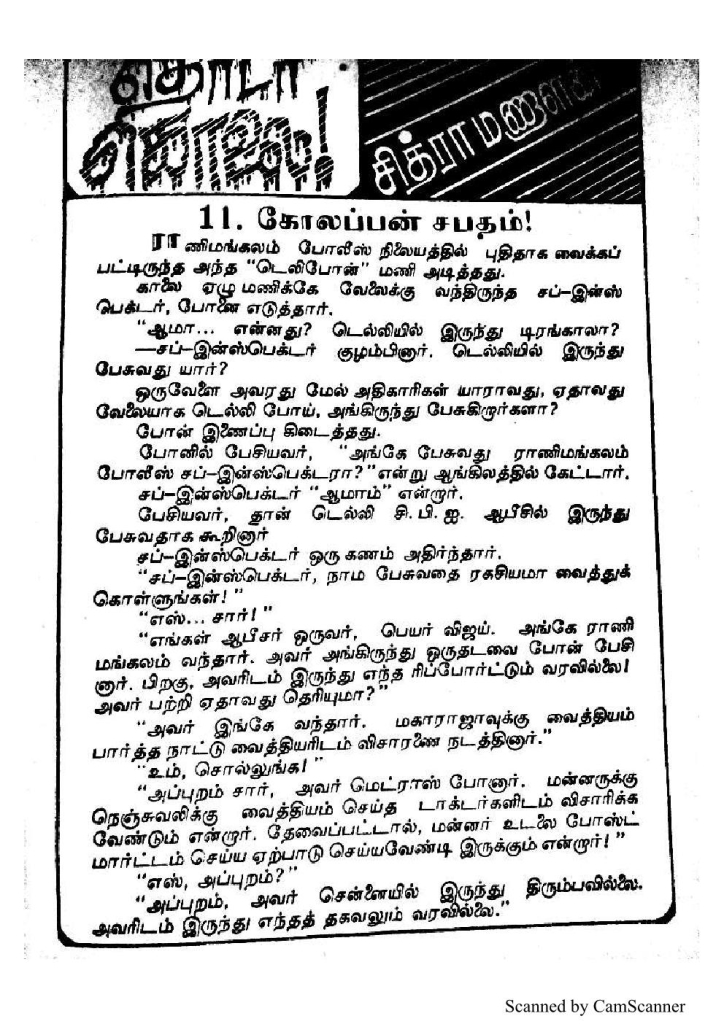 தொடர்
கொலை!
சித்ரா மணாளன்
11. கோலப்பன் சபதம்!
ராணிமங்கலம் போலீஸ் நிலையத்தில் புதிதாக வைக்கப்
பட்டிருந்த அந்த “டெலிபோன்” மணி அடித்தது.
காலை ஏழு மணிக்கே வேலைக்கு வந்திருந்த சப்–இன்ஸ்
பெக்டர், போனை எடுத்தார்.
“ஆமா... என்னது? டெல்லியில் இருந்து டிரங்காலா?
—சப்–இன்ஸ்பெக்டர் குழம்பினார். டெல்லியில் இருந்து
பேசுவது யார்?
ஒருவேளை அவரது மேல் அதிகாரிகள் யாராவது, ஏதாவது
வேலையாக டெல்லி போய், அங்கிருந்து பேசுகிறார்களா?
போன் இணைப்பு கிடைத்தது.
போனில் பேசியவர், “அங்கே பேசுவது ராணிமங்கலம்
போலீஸ் சப்–இன்ஸ்பெக்டரா?” என்று ஆங்கிலத்தில் கேட்டார்.
சப்–இன்ஸ்பெக்டர் “ஆமாம்” என்றார்.
பேசியவர், தான் டெல்லி சி. பி. ஐ. ஆபீசில் இருந்து
பேசுவதாக கூறினார்
சப்–இன்ஸ்பெக்டர் ஒரு கணம் அதிர்ந்தார்.
“சப்–இன்ஸ்பெக்டர், நாம பேசுவதை ரகசியமா வைத்துக்
கொள்ளுங்கள்! ”
“எஸ்... சார்! ”
“எங்கள் ஆபீசர் ஒருவர், பெயர் விஜய். அங்கே ராணி
மங்கலம் வந்தார். அவர் அங்கிருந்து ஒருதடவை போன் பேசி
னார். பிறகு, அவரிடம் இருந்து எந்த ரிப்போர்ட்டும் வரவில்லை!
அவர் பற்றி ஏதாவது தெரியுமா?”
“அவர் இங்கே வந்தார். மகாராஜாவுக்கு வைத்தியம்
பார்த்த நாட்டு வைத்தியரிடம் விசாரணை நடத்தினார்.”
“உம், சொல்லுங்க! ”
“அப்புறம் சார், அவர் மெட்ராஸ் போனார். மன்னருக்கு
நெஞ்சுவலிக்கு வைத்தியம் செய்த டாக்டர்களிடம் விசாரிக்க
வேண்டும் என்றார். தேவைப்பட்டால், மன்னர் உடலை போஸ்ட்
மார்ட்டம் செய்ய ஏற்பாடு செய்யவேண்டி இருக்கும் என்றார்! ”
“எஸ், அப்புறம்?”
“அப்புறம், அவர் சென்னையில் இருந்து திரும்பவில்லை.
அவரிடம் இருந்து எந்தத் தகவலும் வரவில்லை.”
Scanned by CamScanner